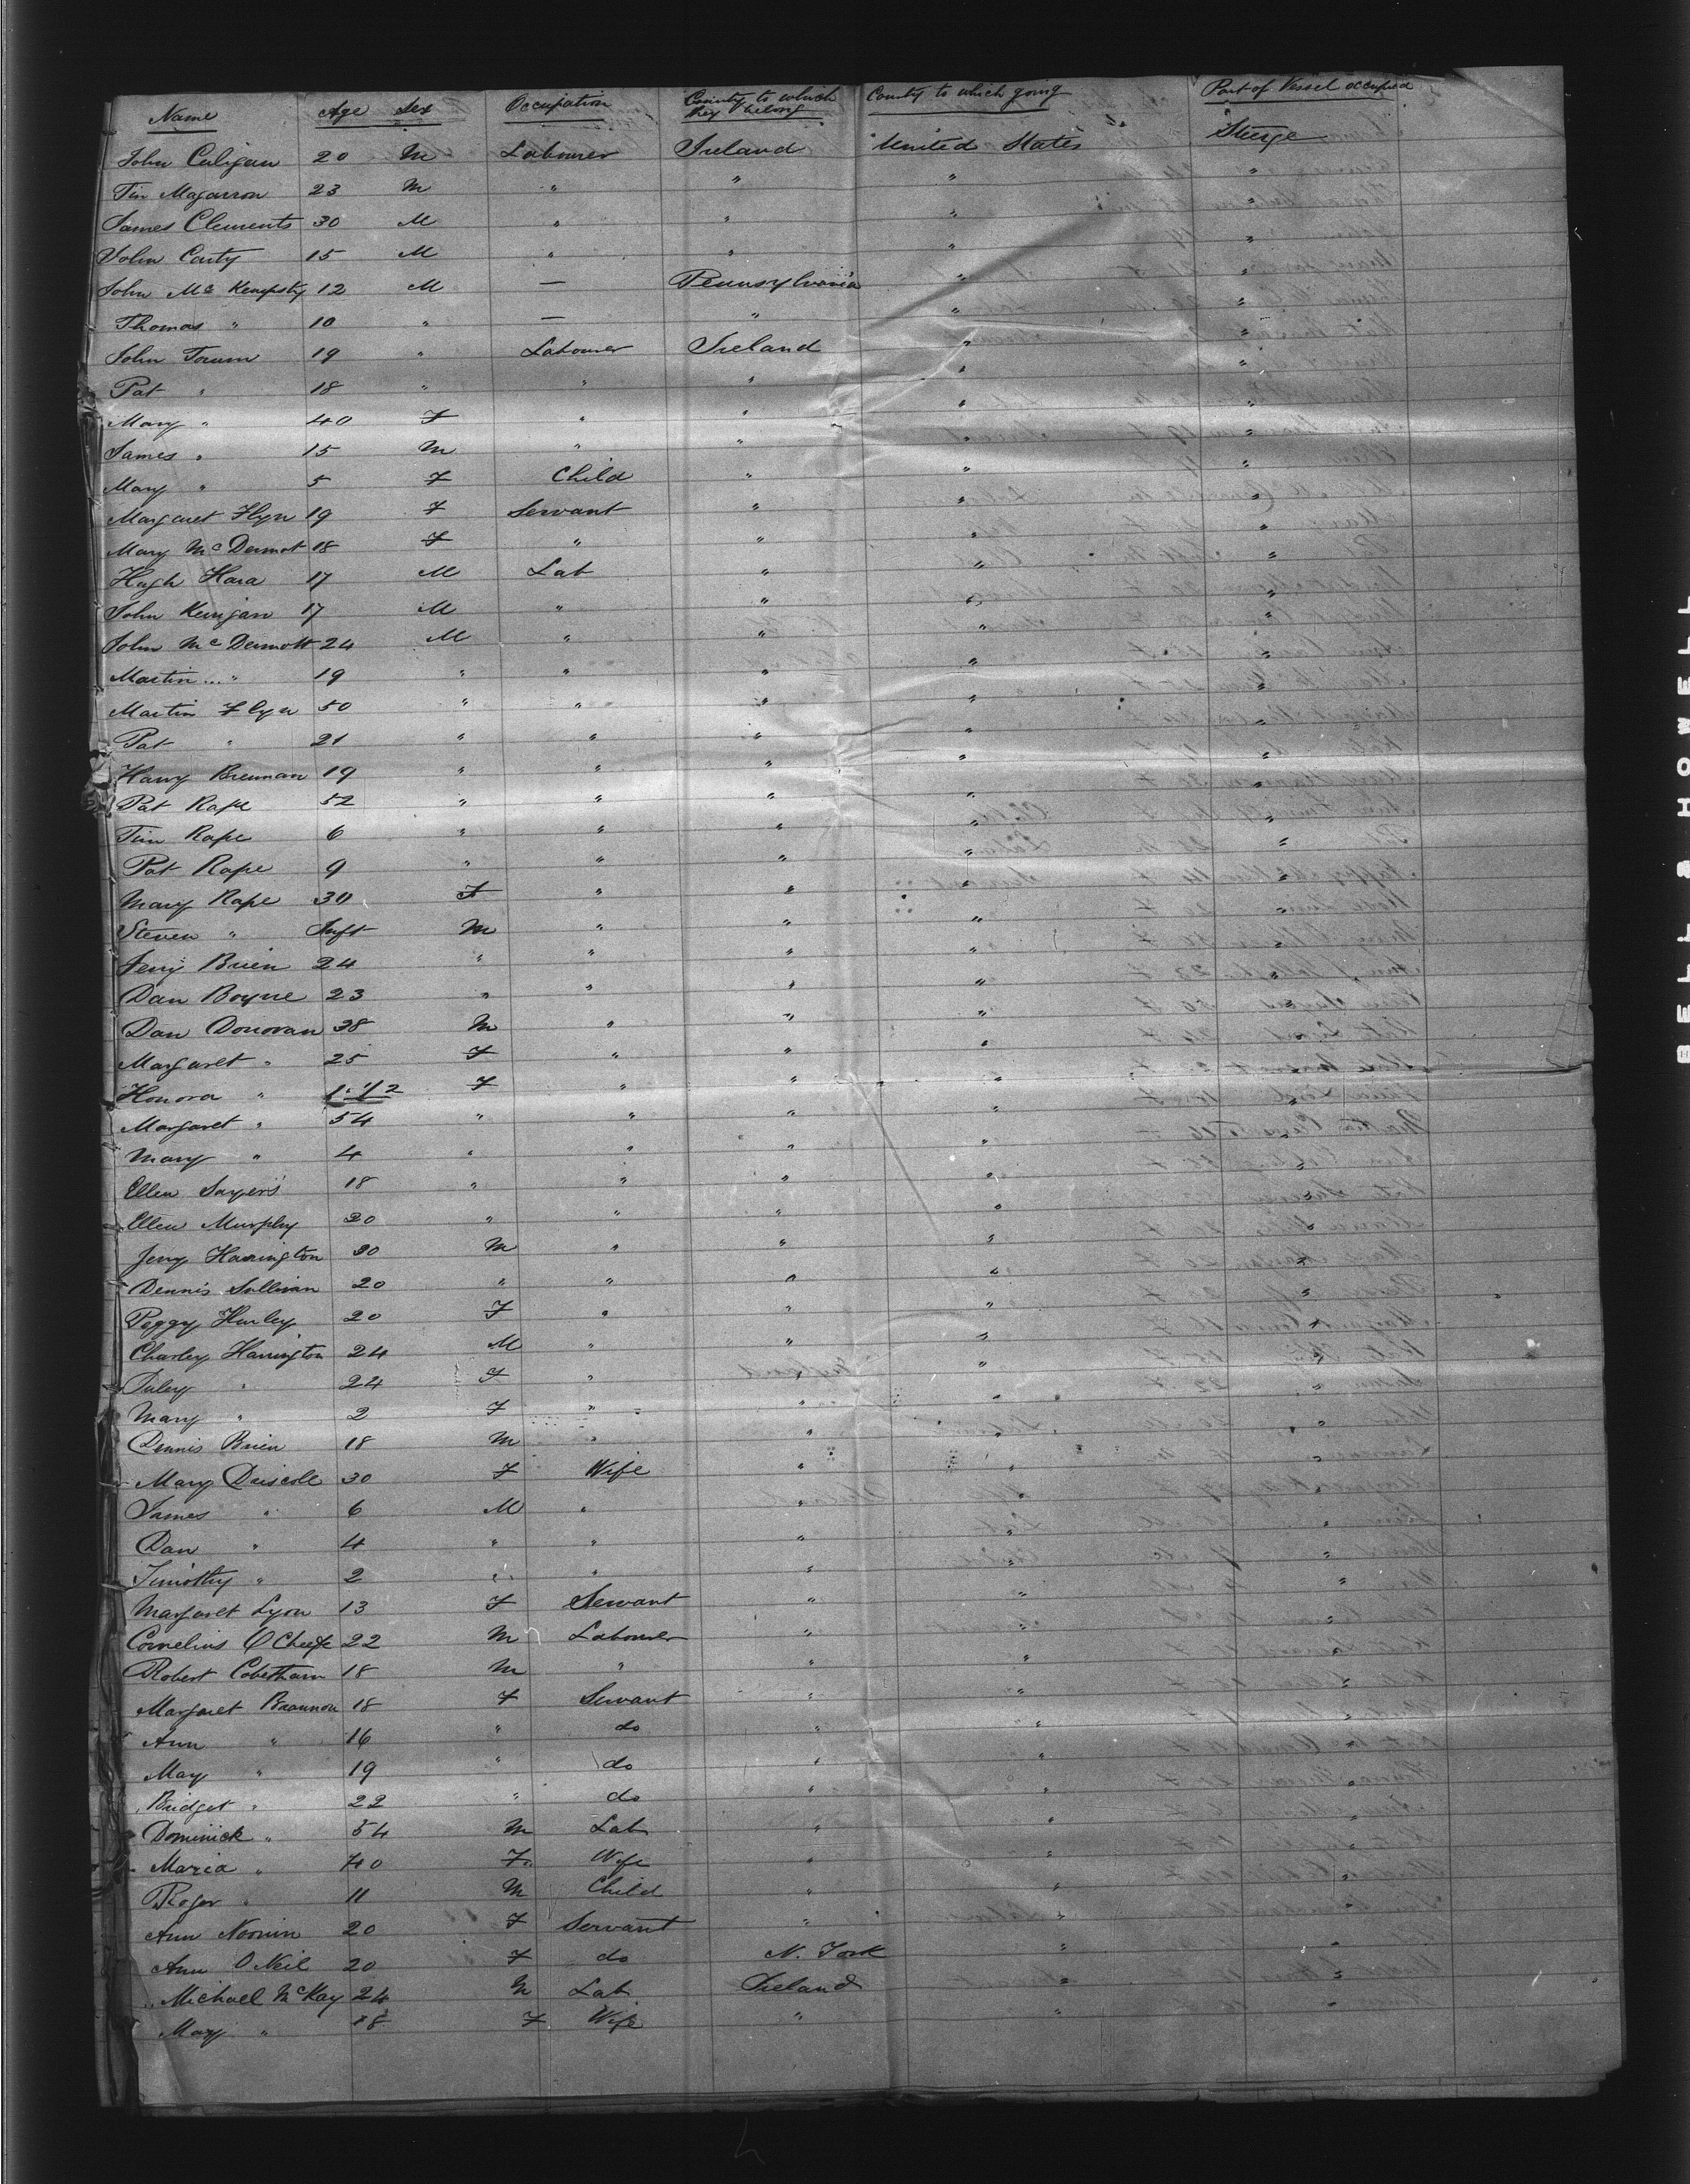 Name Age Sex Occupation County to which they belong County to which going Part of Vessel occupied
John Culigan 20 M Labourer Ireland United States Steerge
Tim Magarron 23 M " " " "
James Clements 30 M " " " "
John Carty 15 M " " " "
John Mc Kempsty 12 M — Pennsylvania " "
Thomas " 10 " — " " "
John Torum 19 " Labourer Ireland " "
Pat " 18 " " " " "
Mary " 40 F " " " "
James " 15 M " " " "
Mary " 5 F Child " " "
Margaret Flyn 19 F Servant " " "
Mary McDermot 18 F " " " "
Hugh Hara 17 M Lab " " "
John Kerrigan 17 M " " " "
John McDermott 24 M " " " "
Martin " 19 " " " " "
Martin Flyn 50 " " " " "
Pat " 21 " " " " "
Harry Brennan 19 " " " " "
Pat Rape 52 " " " " "
Tim Rape 6 " " " " "
Pat Rape 9 " " " " "
Mary Rape 30 F " " " "
Steven " Inft M " " " "
Jerry Brien 24 " " " " "
Dan Boyne 23 " " " " "
Dan Donovan 38 M " " " "
Margaret " 25 F " " " "
Honora " 1 1/2 F " " " "
Margaret " 54 " " " " "
Mary " 4 " " " " "
Ellen Sayers 18 " " " " "
Ellen Murphy 20 " " " " "
Jerry Harrington 30 M " " " "
Dennis Sullivan 20 " " " " "
Peggy Hurley 20 F " " " "
Charley Harrington 24 M " " " "
Juley " 24 F " " " "
Mary " 2 F " " " "
Dennis Brien 18 M " " " "
Mary Driscole 30 F Wife " " "
James " 6 M " " " "
Dan " 4 " " " " "
Timothy " 2 " " " " "
Margaret Lyon 13 F Servant " " "
Cornelius O Cheefe 22 M Labourer " " "
Robert Cobetham 18 M " " " "
Margaret Brannon 18 F Servant " " "
Ann " 16 " do " " "
May " 19 " do " " "
Bridget " 22 " do " " "
Dominick " 54 M Lab " " "
Maria " 40 F Wife " " "
Roger " 11 M Child " " "
Ann Noonin 20 F Servant " " "
Ann O Neil 20 F do N. York " "
Michael McKay 24 M Lab Ireland " "
Mary " 18 F Wife " " "
BELL & HOWELL